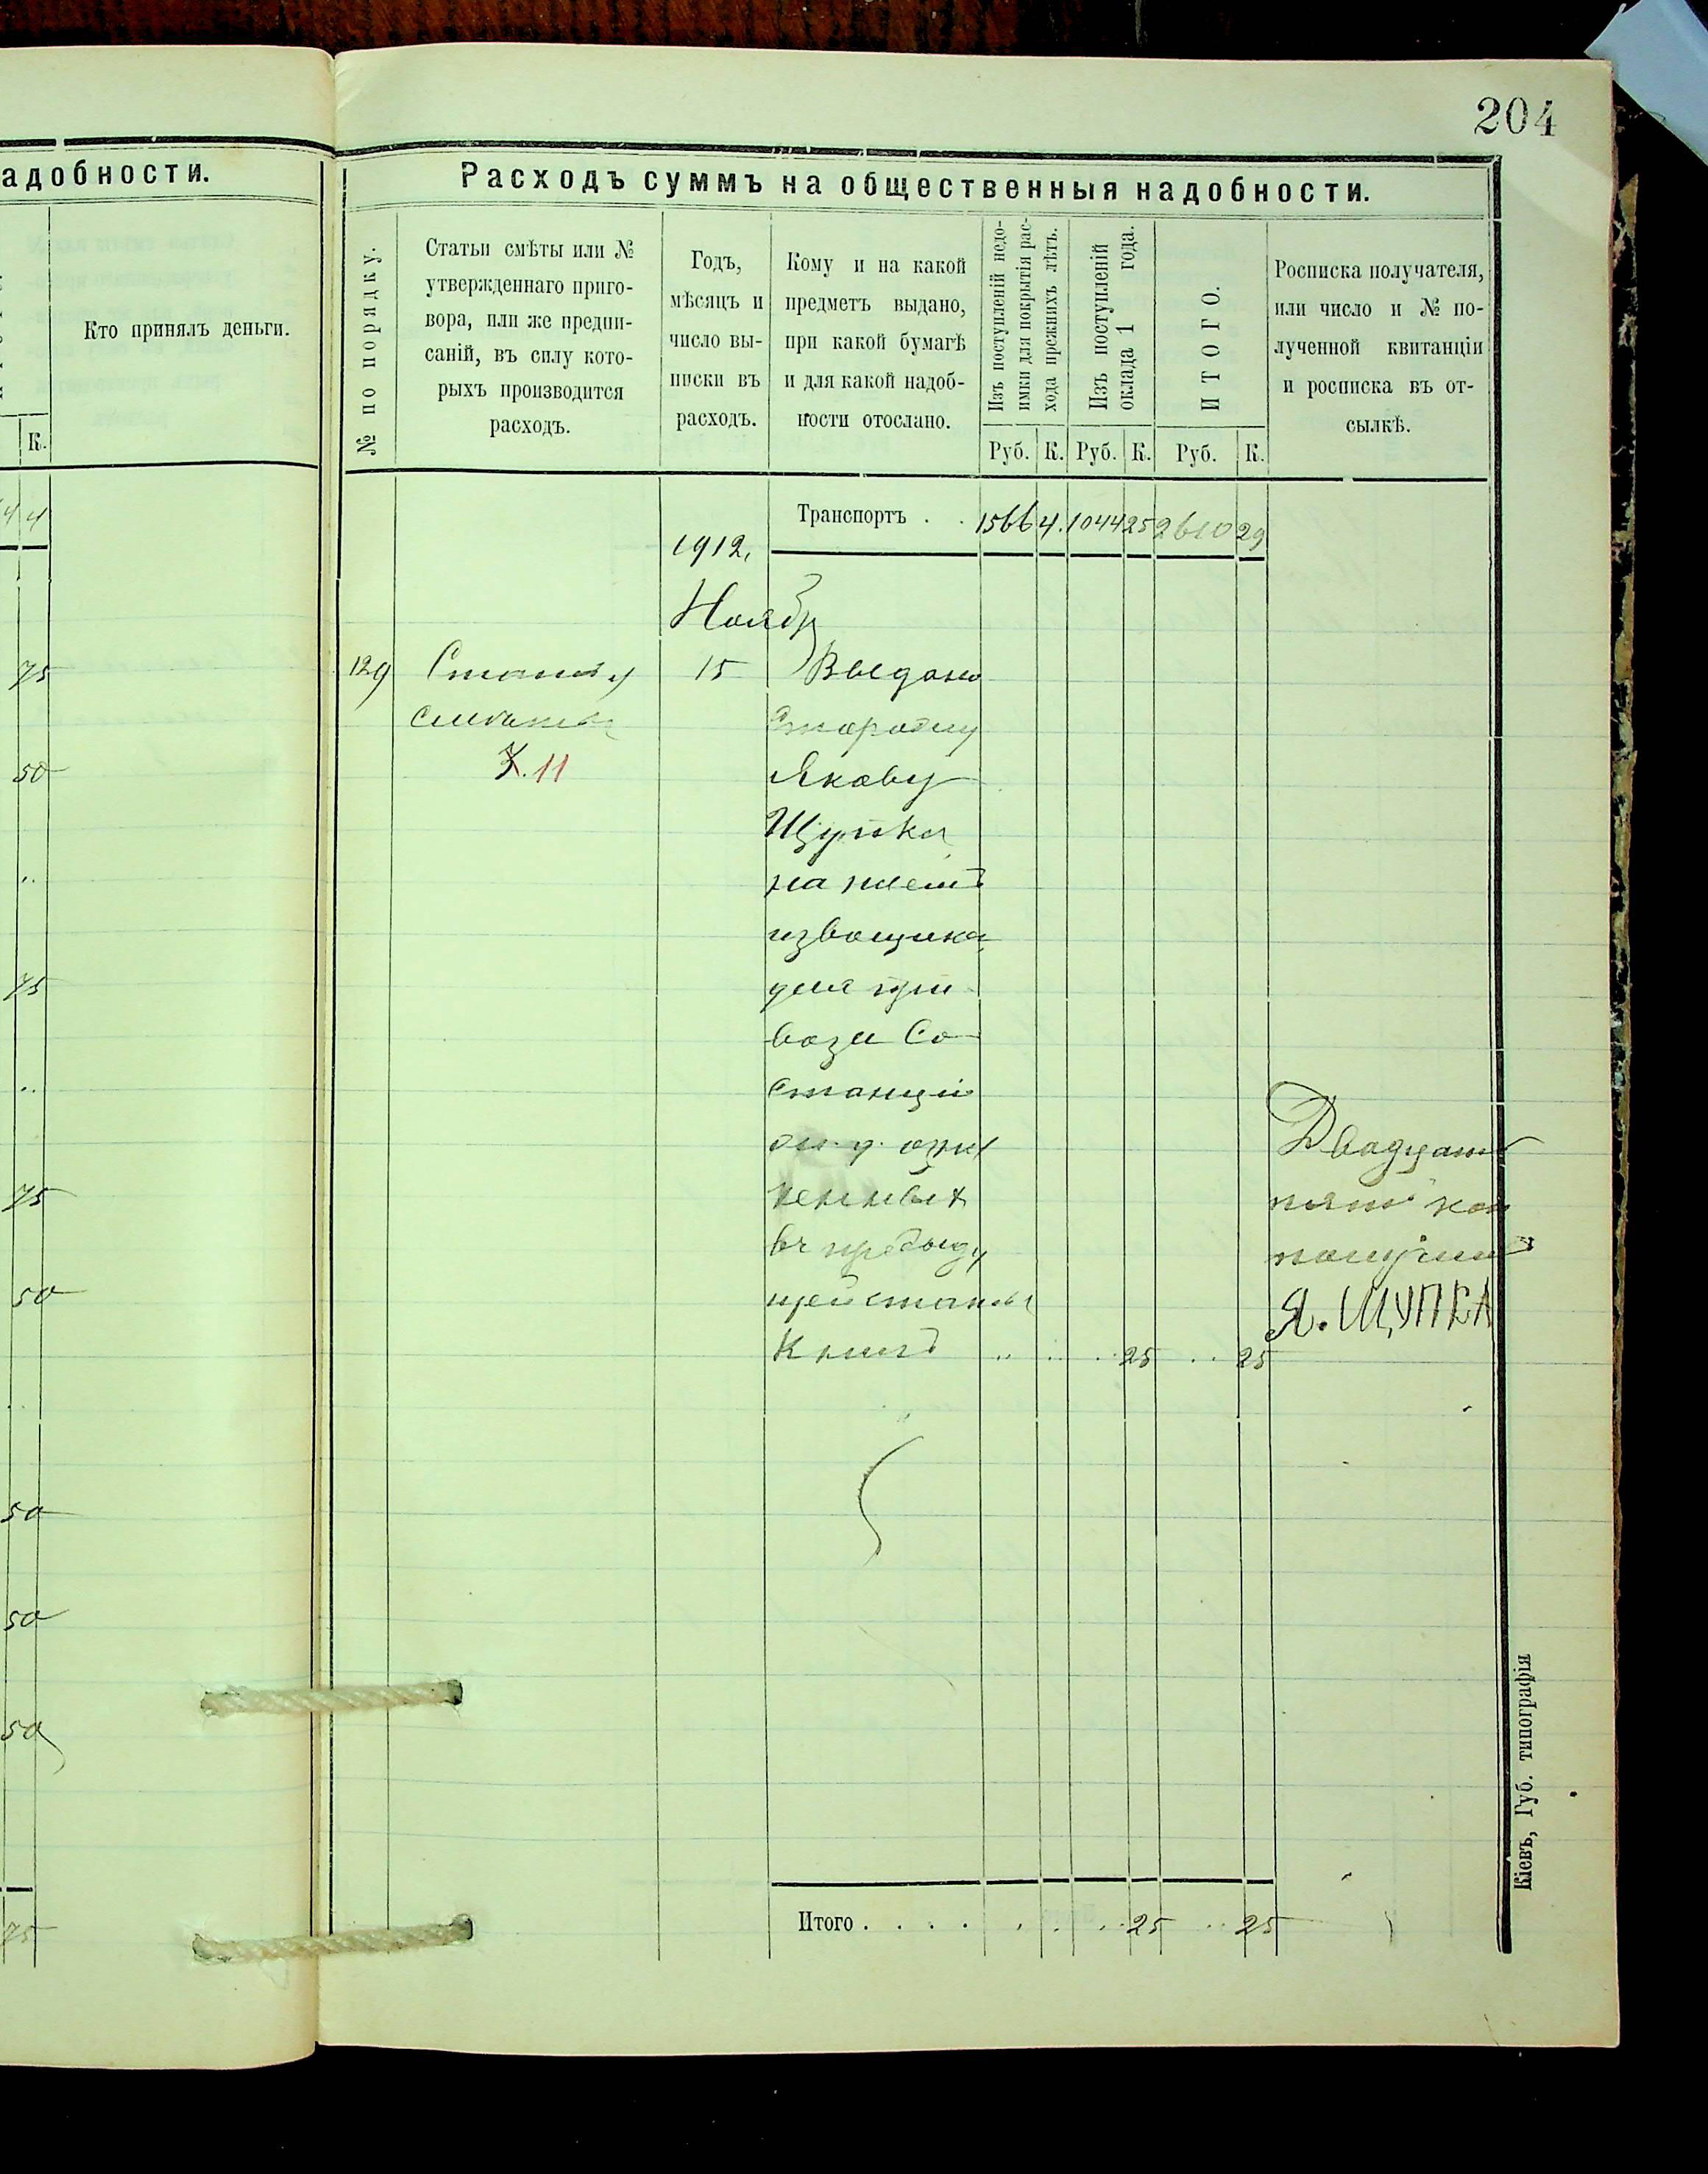 204
адобности.
Кто принялъ деньги.
К.
44
75
50
75
75
50
50
50
50
75
Расходъ суммъ на общественныя надобности.
№ по порядку.
Статьи смѣты или №
утвержденнаго приго-
вора, или же предпи-
саній, въ силу кото-
рыхъ производится
расходъ.
Годъ,
мѣсяцъ и
число вы-
писки въ
расходъ.
Кому и на какой
предметъ выдано,
при какой бумагѣ
и для какой надоб-
ности отослано.
Изъ поступленій недо-
имки для покрытія рас-
хода прежнихъ лѣтъ.
Изъ поступленій
оклада 1 года.
ИТОГО.
Руб. К. Руб. К. Руб. К.
Росписка получателя,
или число и № по-
лученной квитанціи
и росписка въ от-
сылкѣ.
Транспортъ . . 1566 4. 1044 25 2610 29
1912.
Ноябр
129 15 Выдано
11
Якову
Щупка
на наемъ
извощика
для при-
воза со
станціи
въ предыду
щей статьи
Книгъ 25 25
Двадцать
пять коп
получилъ
Я. ЩУПКА
Итого . . . . 25 25
Кіевъ, Губ. типографія